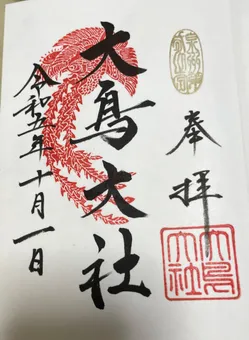 奉拝
大鳥大社
令和五年十月一日
大鳥
大社